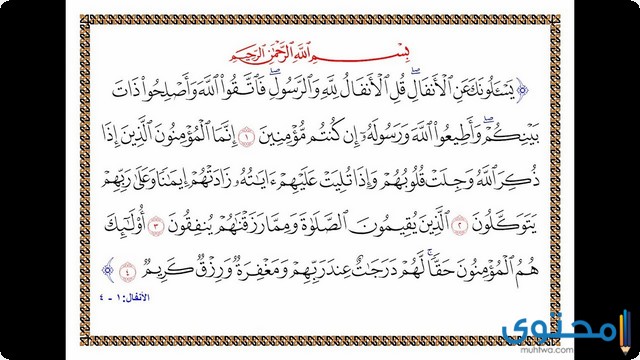 بِسْمِ اللَّهِ الرَّحْمَٰنِ الرَّحِيمِ
﴿يَسْـَٔلُونَكَ عَنِ الْأَنفَالِ ۖ قُلِ الْأَنفَالُ لِلَّهِ وَالرَّسُولِ ۖ فَاتَّقُوا۟ اللَّهَ وَأَصْلِحُوا۟ ذَاتَ
بَيْنِكُمْ ۖ وَأَطِيعُوا۟ اللَّهَ وَرَسُولَهُۥٓ إِن كُنتُم مُّؤْمِنِينَ ١ إِنَّمَا الْمُؤْمِنُونَ الَّذِينَ إِذَا
ذُكِرَ اللَّهُ وَجِلَتْ قُلُوبُهُمْ وَإِذَا تُلِيَتْ عَلَيْهِمْ ءَايَٰتُهُۥ زَادَتْهُمْ إِيمَٰنًا وَعَلَىٰ رَبِّهِمْ
يَتَوَكَّلُونَ ٢ الَّذِينَ يُقِيمُونَ الصَّلَوٰةَ وَمِمَّا رَزَقْنَٰهُمْ يُنفِقُونَ ٣ أُو۟لَٰٓئِكَ
هُمُ الْمُؤْمِنُونَ حَقًّا ۚ لَّهُمْ دَرَجَٰتٌ عِندَ رَبِّهِمْ وَمَغْفِرَةٌ وَرِزْقٌ كَرِيمٌ ٤﴾
الأنفال: ١ - ٤
محتوى
muhtwa.com